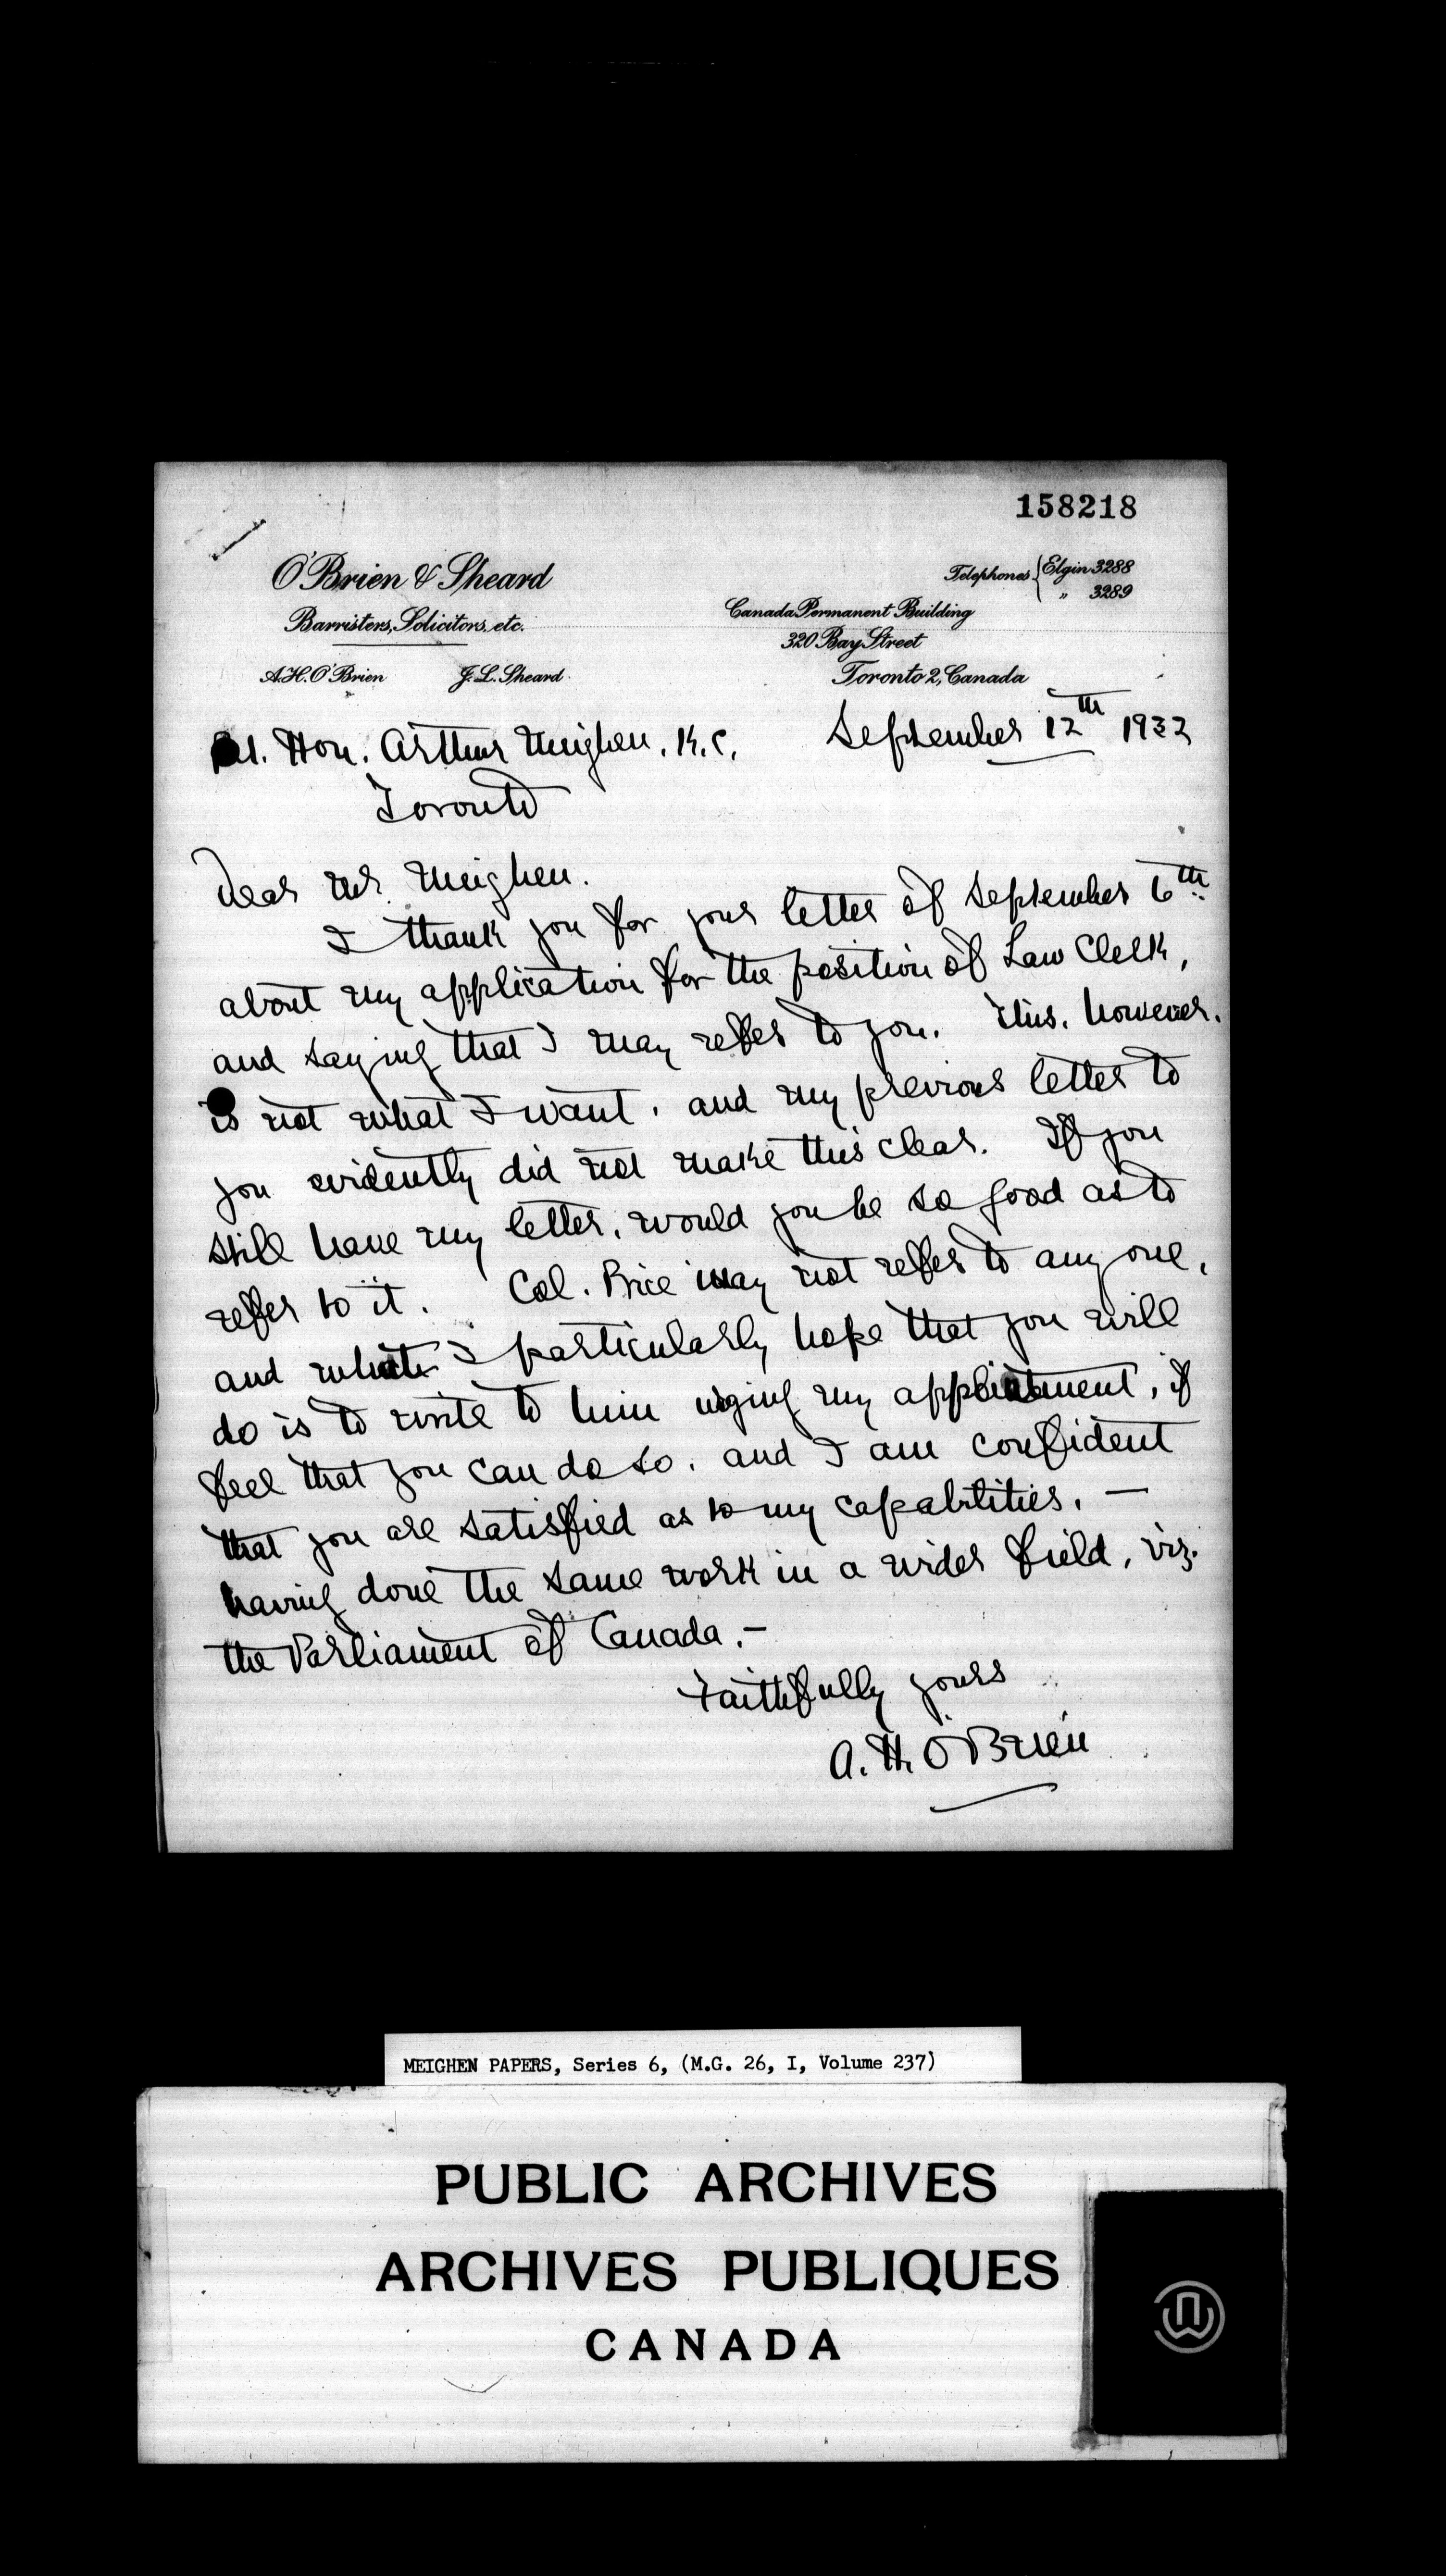 158218
O'Brien & Sheard
Barristers, Solicitors, etc.
A.H. O'Brien J.L. Sheard
Telephones { Elgin 3288
" 3289
Canada Permanent Building
320 Bay Street
Toronto 2, Canada
September 12th 1932
Rt. Hon. Arthur Meighen, K.C.
Toronto
Dear Mr. Meighen.
I thank you for your letter of September 6th
about my application for the position of Law Clerk,
and saying that I may refer to you. This, however,
is not what I want, and my previous letter to
you evidently did not make this clear. If you
still have my letter, would you be so good as to
refer to it. Col. Price may not refer to any one,
and what I particularly hope that you will
do is to write to him urging my appointment, if
feel that you can do so, and I am confident
that you are satisfied as to my capabilities, —
having done the same work in a wider field, viz.
the Parliament of Canada. —
Faithfully yours
A. H. O'Brien
MEIGHEN PAPERS, Series 6, (M.G. 26, I, Volume 237)
PUBLIC ARCHIVES
ARCHIVES PUBLIQUES
CANADA